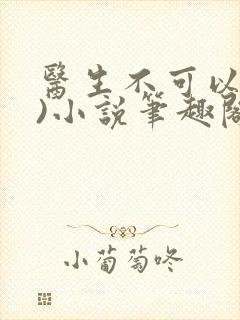 醫生不可以
)小說筆趣閣
小葡萄咚